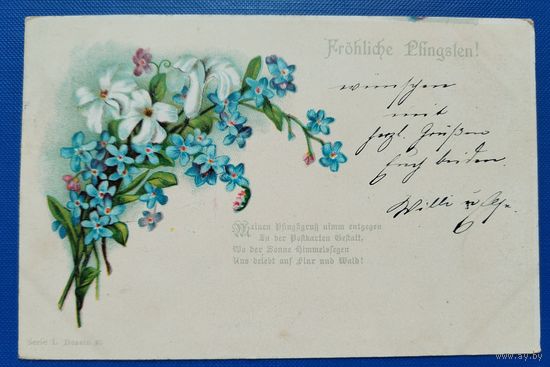 Fröhliche Pfingsten!
wünschen
mit
herzl. Grüßen
Euch beiden
Willi u.
Meinen Pfingstgruß nimm entgegen
In der Postkarten Gestalt,
Wo der Sonne Himmelssegen
Uns belebt auf Flur und Wald!
Serie L. Dessin
ay.by